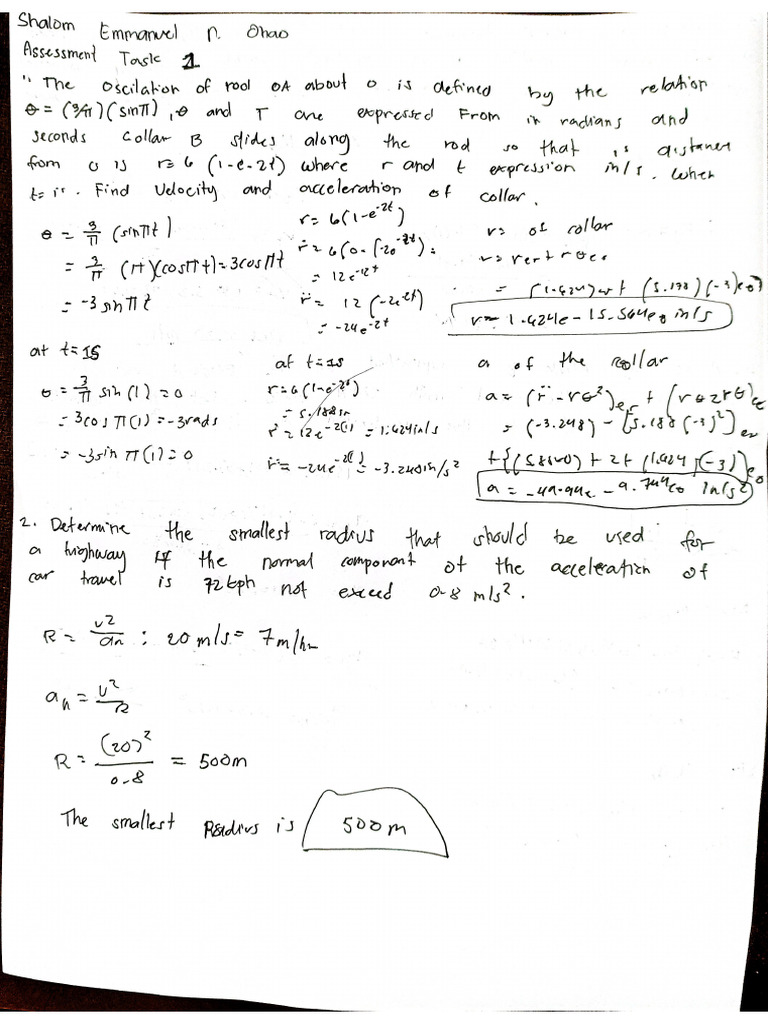 Shalom Emmanuel N. Ohao
Assessment Task 1
" The oscilation of rod OA about O is defined by the relation
θ = (3/π)(sinπ), θ and T are expressed From in radians and
seconds Collar B slides along the rod so that is distance
from O is r= 6 (1-e-2t) where r and t expression in/s. When
t= is. Find Velocity and acceleration of collar.
θ = 3/π (sinπt)
= 3/π (π)(cosπt)=3cosπt
= -3 sinπt
r= 6(1-e^-2t)
= 12e^-2t
r̈= 12 (-2e^2t)
= -24e^-2t
v= of collar
r= 1.624e - 15.564eθ in/s
at t=1s
θ = 3/π sin (1) = 0
= 3cos π(1) = -3rads
= -3sin π(1) = 0
at t=1s
r=6(1-e^-2t)
= 5.188in
r= 12e^-2(1) = 1.624in/s
r̈= -24e^-2() = -3.248in/s²
a of the collar
a= (r̈ - rθ²)er + (rθ2rθ)eθ
= (-3.248) - [5.188 (-3)²]er
+{(5.8800) + 2+ (1.624)(-3)}eθ
a= -49.94e - 9.744eθ in/s²
2. Determine the smallest radius that should be used for
a highway If the normal component of the acceleration of
car travel is 72kph not exceed 0.8 m/s².
R = v²/an : 20 m/s = 7m/hr
an = v²/R
R = (20)²/0.8 = 500m
The smallest Radius is 500m